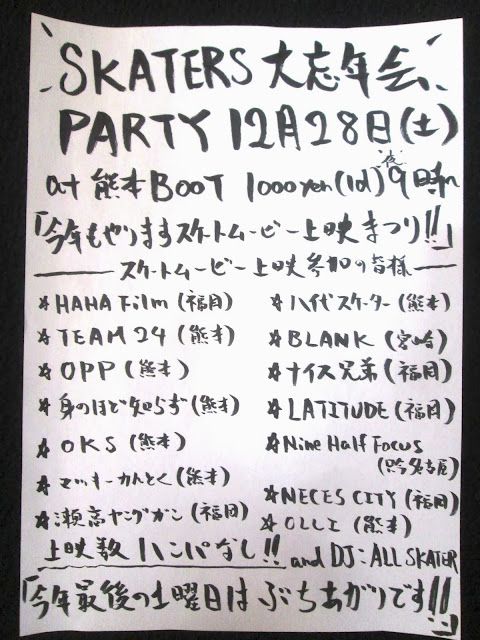 SKATERS 大忘年会
PARTY 12月28日(土)
at 熊本BOOT 1000yen(1d) 夜9時〜
「今年もやりますスケートムービー上映まつり!!」
スケートムービー上映参加の皆様
☆HAHA Film (福岡)
☆TEAM 24 (熊本)
☆OPP (熊本)
☆身のほど知らず (熊本)
☆OKS (熊本)
☆マッキーかんとく (熊本)
☆瀬高ヤングガン (福岡)
☆八代スケーター (熊本)
☆BLANK (宮崎)
☆ナイス兄弟 (福岡)
☆LATITUDE (福岡)
☆Nine Half Focus
名古屋)
☆NECES CITY (福岡)
☆OLLI (熊本)
上映数ハンパなし!! and DJ:ALL SKATER
「今年最後の土曜日はぶちあがりです!!」